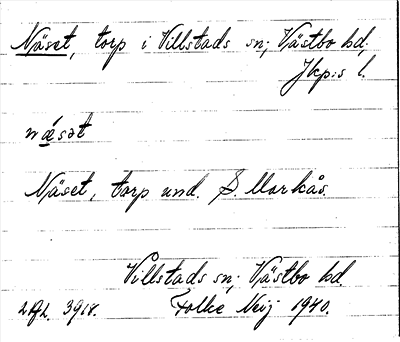 Näset, torp i Villstads sn; Västbo hd;
Jkp:s l.
næ´sət
Näset, torp und. S Markås.
Villstads sn; Västbo hd.
3918. Folke Neij 1940.